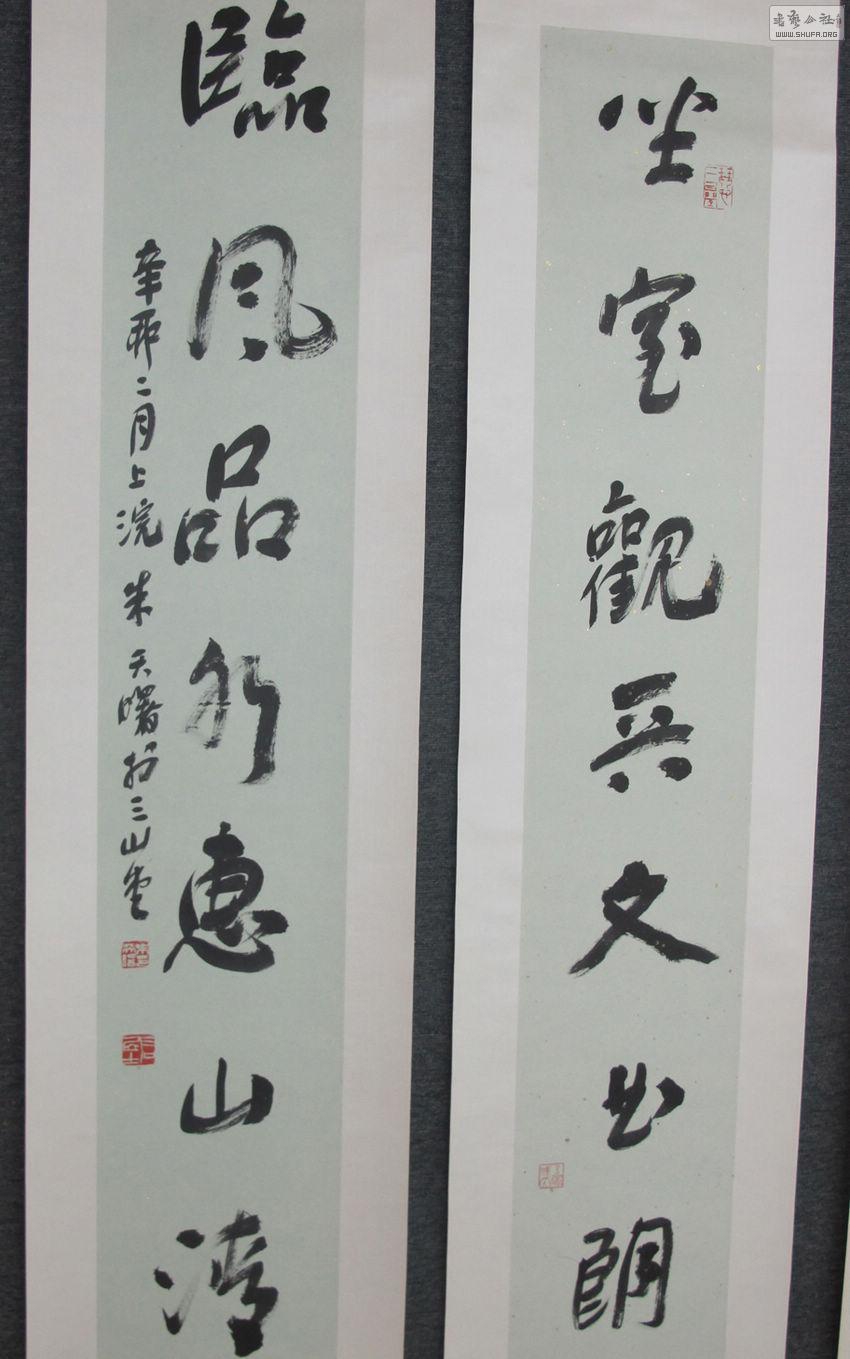 書藝公社
WWW.SHUFA.ORG
坐室觀文朗
臨風品竹惠山清
辛卯二月上浣朱天曙於三山堂